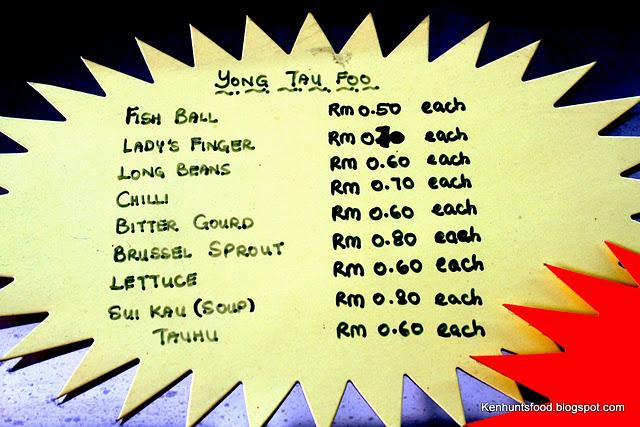 YONG TAU FOO
FISH BALL RM 0.50 each
LADY'S FINGER RM 0.70 each
LONG BEANS RM 0.60 each
CHILLI RM 0.70 each
BITTER GOURD RM 0.60 each
BRUSSEL SPROUT RM 0.80 each
LETTUCE RM 0.60 each
SUI KAU (SOUP) RM 0.80 each
TAUHU RM 0.60 each
Kenhuntsfood.blogspot.com